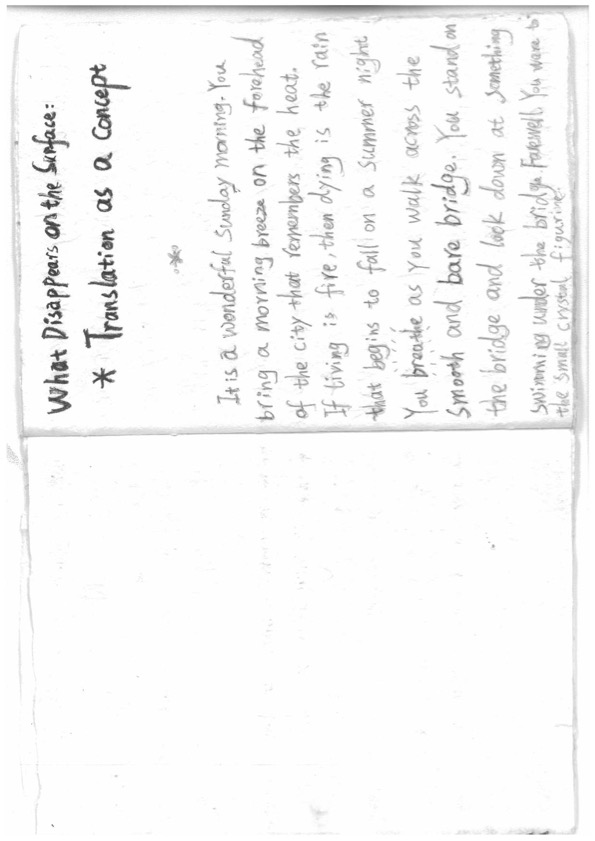 What Disappears on the Surface:
* Translation as a Concept
*
It is a wonderful Sunday morning. You
bring a morning breeze on the forehead
of the city that remembers the heat.
If living is fire, then dying is the rain
that begins to fall on a summer night
You breathe as you walk across the
smooth and bare bridge. You stand on
the bridge and look down at something
swimming under the bridge. Farewell. You wave to
the small crystal figurine.